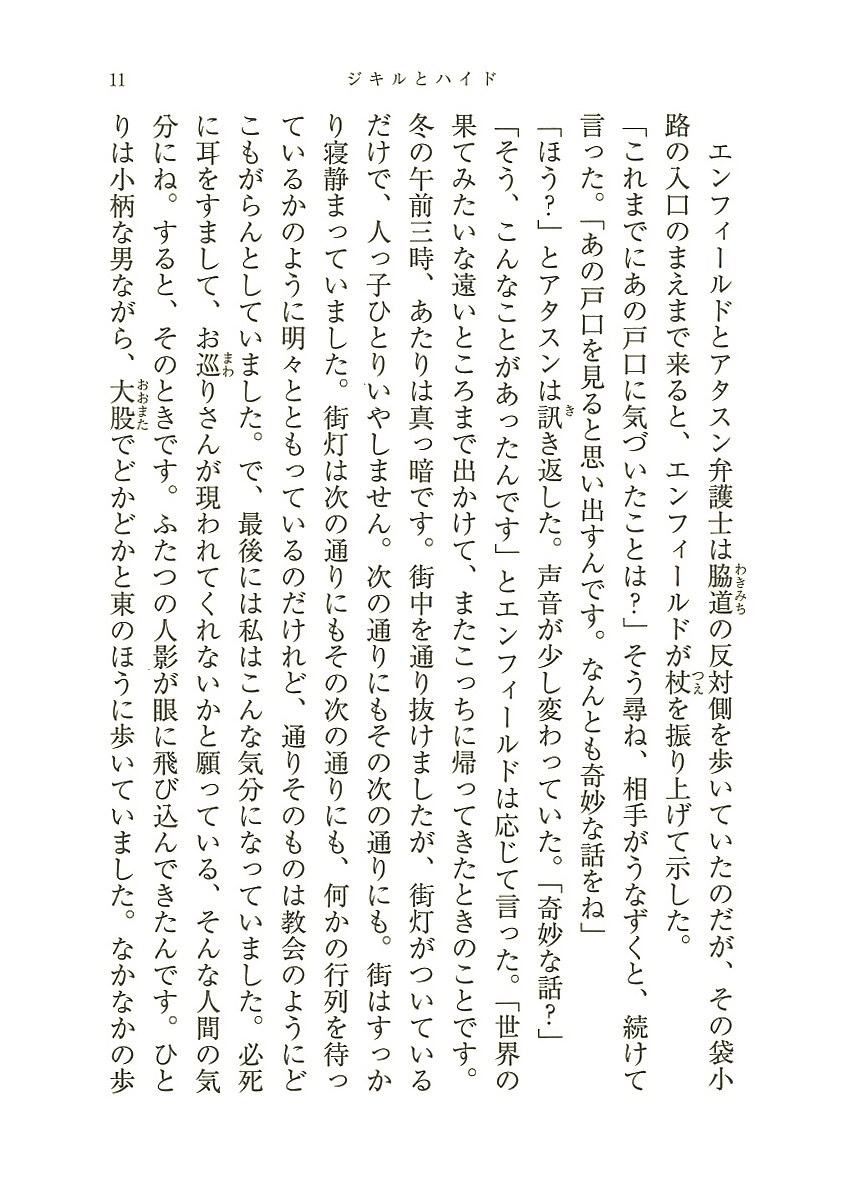 11
ジキルとハイド
エンフィールドとアタスン弁護士は脇道の反対側を歩いていたのだが、その袋小
路の入口のまえまで来ると、エンフィールドが杖を振り上げて示した。
「これまでにあの戸口に気づいたことは?」そう尋ね、相手がうなずくと、続けて
言った。「あの戸口を見ると思い出すんです。なんとも奇妙な話をね」
「ほう?」とアタスンは訊き返した。声音が少し変わっていた。「奇妙な話?」
「そう、こんなことがあったんです」とエンフィールドは応じて言った。「世界の
果てみたいな遠いところまで出かけて、またこっちに帰ってきたときのことです。
冬の午前三時、あたりは真っ暗です。街中を通り抜けましたが、街灯がついている
だけで、人っ子ひとりいやしません。次の通りにもその次の通りにも。街はすっか
り寝静まっていました。街灯は次の通りにもその次の通りにも、何かの行列を待っ
ているかのように明々とともっているのだけれど、通りそのものは教会のようにど
こもがらんとしていました。で、最後には私はこんな気分になっていました。必死
に耳をすまして、お巡りさんが現われてくれないかと願っている、そんな人間の気
分にね。すると、そのときです。ふたつの人影が眼に飛び込んできたんです。ひと
りは小柄な男ながら、大股でどかどかと東のほうに歩いていました。なかなかの歩
わきみち
つえ
き
まわ
おおまた